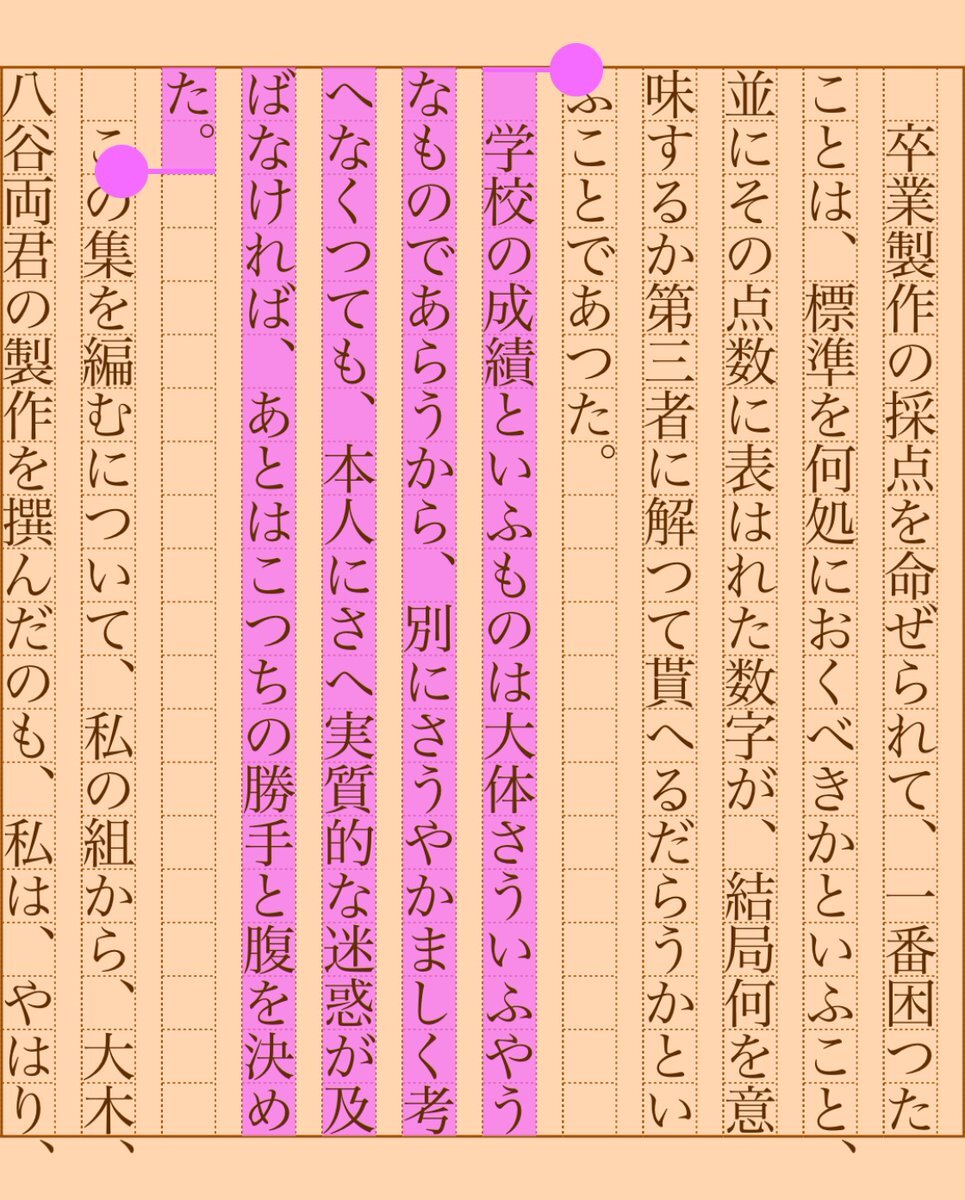 卒業製作の採点を命ぜられて、一番困つた
ことは、標準を何処におくべきかといふこと、
並にその点数に表はれた数字が、結局何を意
味するか第三者に解つて貰へるだらうかとい
ふことであつた。
　学校の成績といふものは大体さういふやう
なものであらうから、別にさうやかましく考
へなくつても、本人にさへ実質的な迷惑が及
ばなければ、あとはこつちの勝手と腹を決め
た。
　この集を編むについて、私の組から、大木、
八谷両君の製作を撰んだのも、私は、やはり、